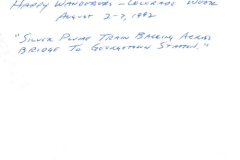 Happy Wanderers - Colorado Week
August 2-7, 1992
"Silver Plume Train Backing Across
Bridge To Georgetown Station."